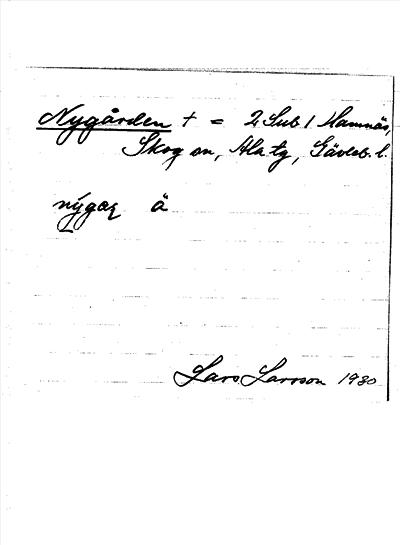 Nygården † = 2 Sub 1 Hamnäs,
Skog sn, Ala tg, Gävleb. l.
nýgaɳ ä
Lars Larsson 1930